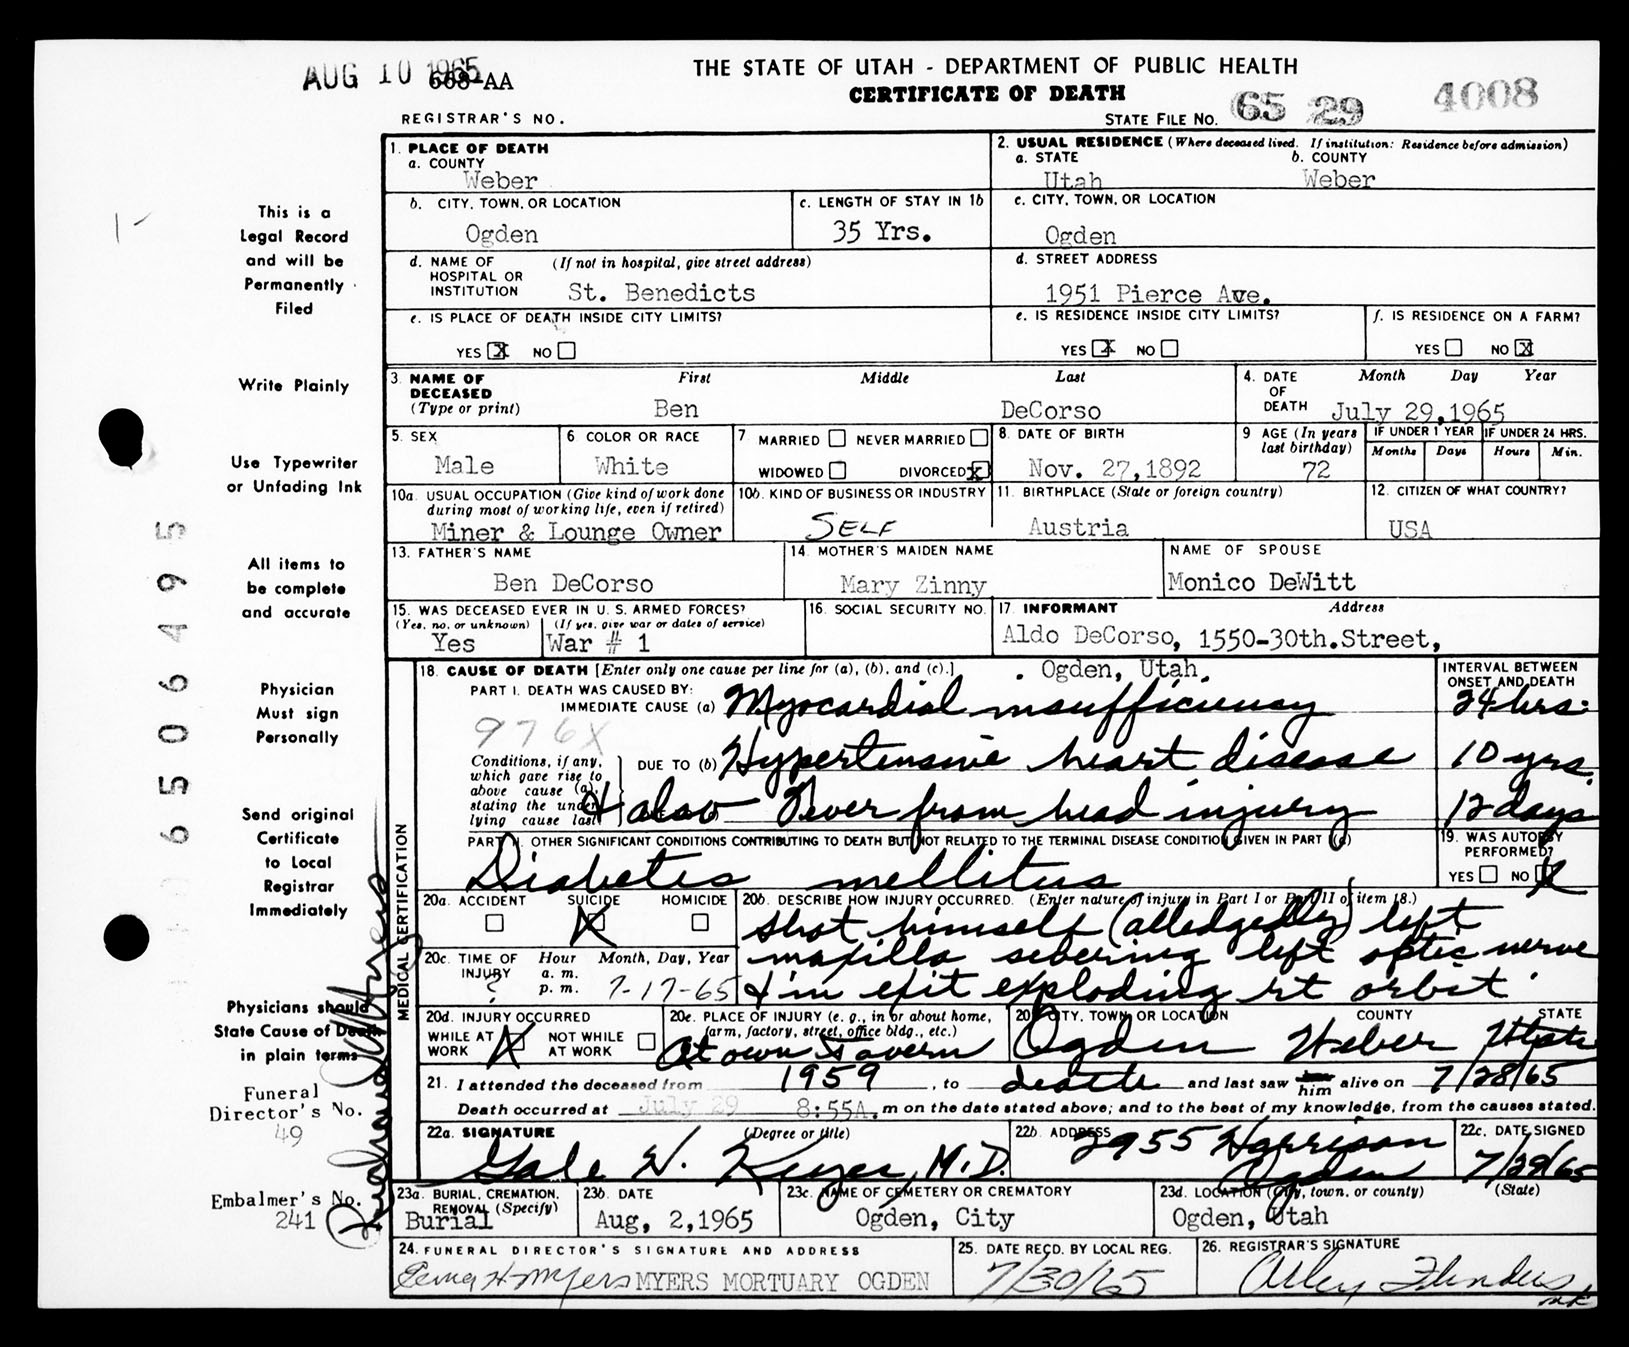 AUG 10 1965
668-AA
THE STATE OF UTAH - DEPARTMENT OF PUBLIC HEALTH
CERTIFICATE OF DEATH
REGISTRAR'S NO.
STATE FILE NO. 65 29 4008
This is a
Legal Record
and will be
Permanently
Filed
Write Plainly
Use Typewriter
or Unfading Ink
All items to
be complete
and accurate
Physician
Must sign
Personally
Send original
Certificate
to Local
Registrar
Immediately
Physicians should
State Cause of Death
in plain terms
Funeral
Director's No.
49
Embalmer's No.
241
6506495
1. PLACE OF DEATH
a. COUNTY
Weber
2. USUAL RESIDENCE (Where deceased lived. If institution: Residence before admission)
a. STATE b. COUNTY
Utah Weber
b. CITY, TOWN, OR LOCATION
Ogden
c. LENGTH OF STAY IN 1b
35 Yrs.
c. CITY, TOWN, OR LOCATION
Ogden
d. NAME OF HOSPITAL OR INSTITUTION (If not in hospital, give street address)
St. Benedicts
d. STREET ADDRESS
1951 Pierce Ave.
e. IS PLACE OF DEATH INSIDE CITY LIMITS?
YES X NO
e. IS RESIDENCE INSIDE CITY LIMITS?
YES X NO
f. IS RESIDENCE ON A FARM?
YES NO X
3. NAME OF DECEASED (Type or print) First Middle Last
Ben DeCorso
4. DATE OF DEATH Month Day Year
July 29,1965
5. SEX
Male
6 COLOR OR RACE
White
7 MARRIED NEVER MARRIED
WIDOWED DIVORCED X
8. DATE OF BIRTH
Nov. 27,1892
9 AGE (In years last birthday)
72
IF UNDER 1 YEAR IF UNDER 24 HRS.
Months Days Hours Min.
10a. USUAL OCCUPATION (Give kind of work done during most of working life, even if retired)
Miner & Lounge Owner
10b. KIND OF BUSINESS OR INDUSTRY
SELF
11. BIRTHPLACE (State or foreign country)
Austria
12. CITIZEN OF WHAT COUNTRY?
USA
13. FATHER'S NAME
Ben DeCorso
14. MOTHER'S MAIDEN NAME
Mary Zinny
NAME OF SPOUSE
Monico DeWitt
15. WAS DECEASED EVER IN U. S. ARMED FORCES?
(Yes, no, or unknown) (If yes, give war or dates of service)
Yes War # 1
16. SOCIAL SECURITY NO.
17. INFORMANT Address
Aldo DeCorso, 1550-30th.Street,
. Ogden, Utah.
MEDICAL CERTIFICATION
18. CAUSE OF DEATH [Enter only one cause per line for (a), (b), and (c).]
INTERVAL BETWEEN ONSET AND DEATH
PART I. DEATH WAS CAUSED BY:
IMMEDIATE CAUSE (a) Myocardial insufficiency 24 hrs.
976X
Conditions, if any, which gave rise to above cause (a), stating the underlying cause last.
DUE TO (b) Hypertensive heart disease 10 yrs.
& also Fever from head injury 12 days
PART II. OTHER SIGNIFICANT CONDITIONS CONTRIBUTING TO DEATH BUT NOT RELATED TO THE TERMINAL DISEASE CONDITION GIVEN IN PART I(a)
Diabetes mellitus
19. WAS AUTOPSY PERFORMED?
YES NO X
20a. ACCIDENT SUICIDE HOMICIDE
X
20b. DESCRIBE HOW INJURY OCCURRED. (Enter nature of injury in Part I or Part II of item 18.)
shot himself (alledgedly) left
maxilla severing left optic nerve
& in exit exploding rt orbit.
20c. TIME OF INJURY Hour Month, Day, Year
a. m.
p. m.
? 7-17-65
20d. INJURY OCCURRED
WHILE AT WORK X NOT WHILE AT WORK
20e. PLACE OF INJURY (e. g., in or about home, farm, factory, street, office bldg., etc.)
At own Tavern
20f. CITY, TOWN, OR LOCATION COUNTY STATE
Ogden Weber Utah
21. I attended the deceased from 1959, to death and last saw him alive on 7/28/65
Death occurred at July 29 8:55A.m on the date stated above; and to the best of my knowledge, from the causes stated.
22a. SIGNATURE (Degree or title)
Gale W. M.D.
22b. ADDRESS
2955 Harrison
Ogden
22c. DATE SIGNED
7/29/65
23a. BURIAL, CREMATION, REMOVAL (Specify)
Burial
23b. DATE
Aug, 2,1965
23c. NAME OF CEMETERY OR CREMATORY
Ogden, City
23d. LOCATION (City, town, or county) (State)
Ogden, Utah
24. FUNERAL DIRECTOR'S SIGNATURE AND ADDRESS
Myers MYERS MORTUARY OGDEN
25. DATE RECD. BY LOCAL REG.
7/30/65
26. REGISTRAR'S SIGNATURE
Flinders